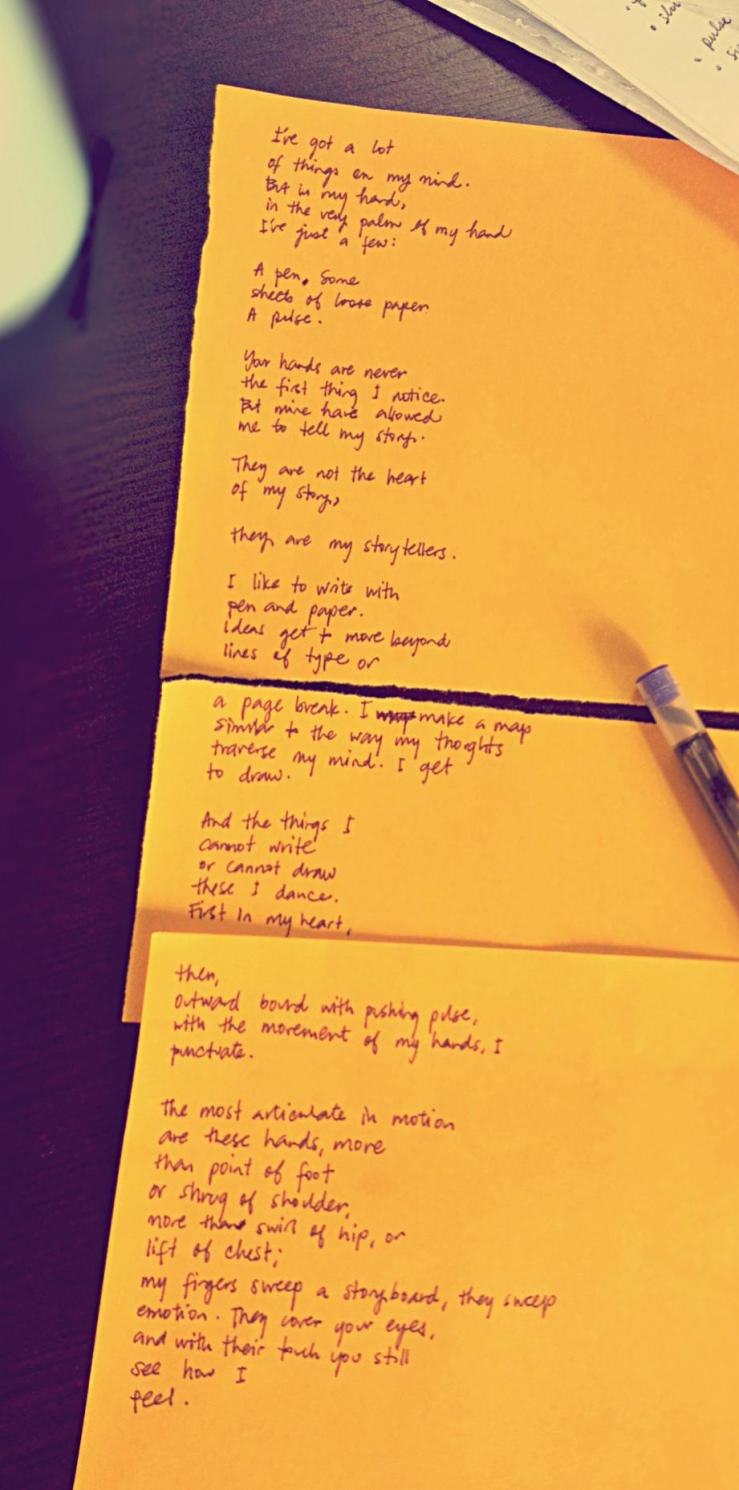 pulse
I've got a lot
of things on my mind.
But in my hand,
in the very palm of my hand
I've just a few:
A pen. Some
sheets of loose paper
A pulse.
Your hands are never
the first thing I notice.
But mine have allowed
me to tell my story.
They are not the heart
of my story,
they are my storytellers.
I like to write with
pen and paper.
ideas get more beyond
lines of type or
a page break. I make a map
similar to the way my thoughts
traverse my mind. I get
to draw.
And the things I
cannot write
or cannot draw
these I dance.
First in my heart,
then,
outward bound with pushing pulse,
with the movement of my hands, I
punctuate.
The most articulate in motion
are these hands, more
than point of foot
or shrug of shoulder,
more than swirl of hip, or
lift of chest;
my fingers sweep a storyboard, they sweep
emotion. They cover your eyes,
and with their touch you still
see how I
feel.